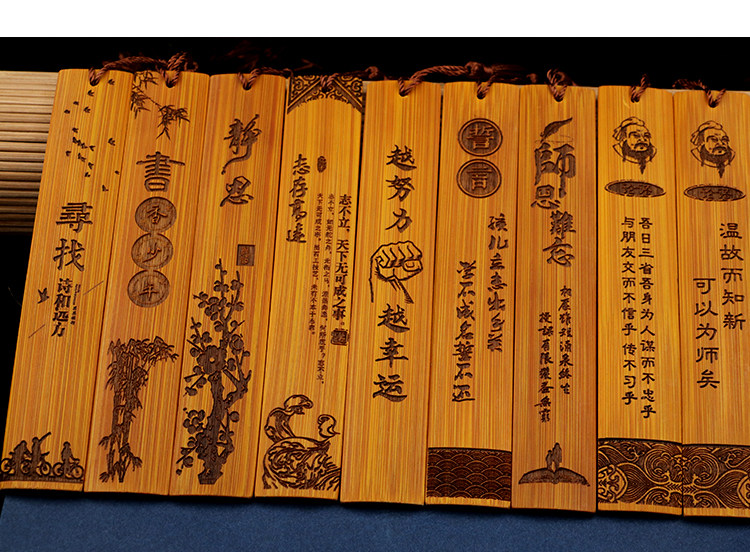 尋找
诗和远方
書
香
少
年
静思
志存高遠
志不立，天下无可成之事
越努力
越幸运
誓
言
孩儿立志出乡关
学不成名誓不还
師恩難忘
吾日三省吾身为人谋而不忠乎
与朋友交而不信乎 传不习乎
温故而知新
可以为师矣